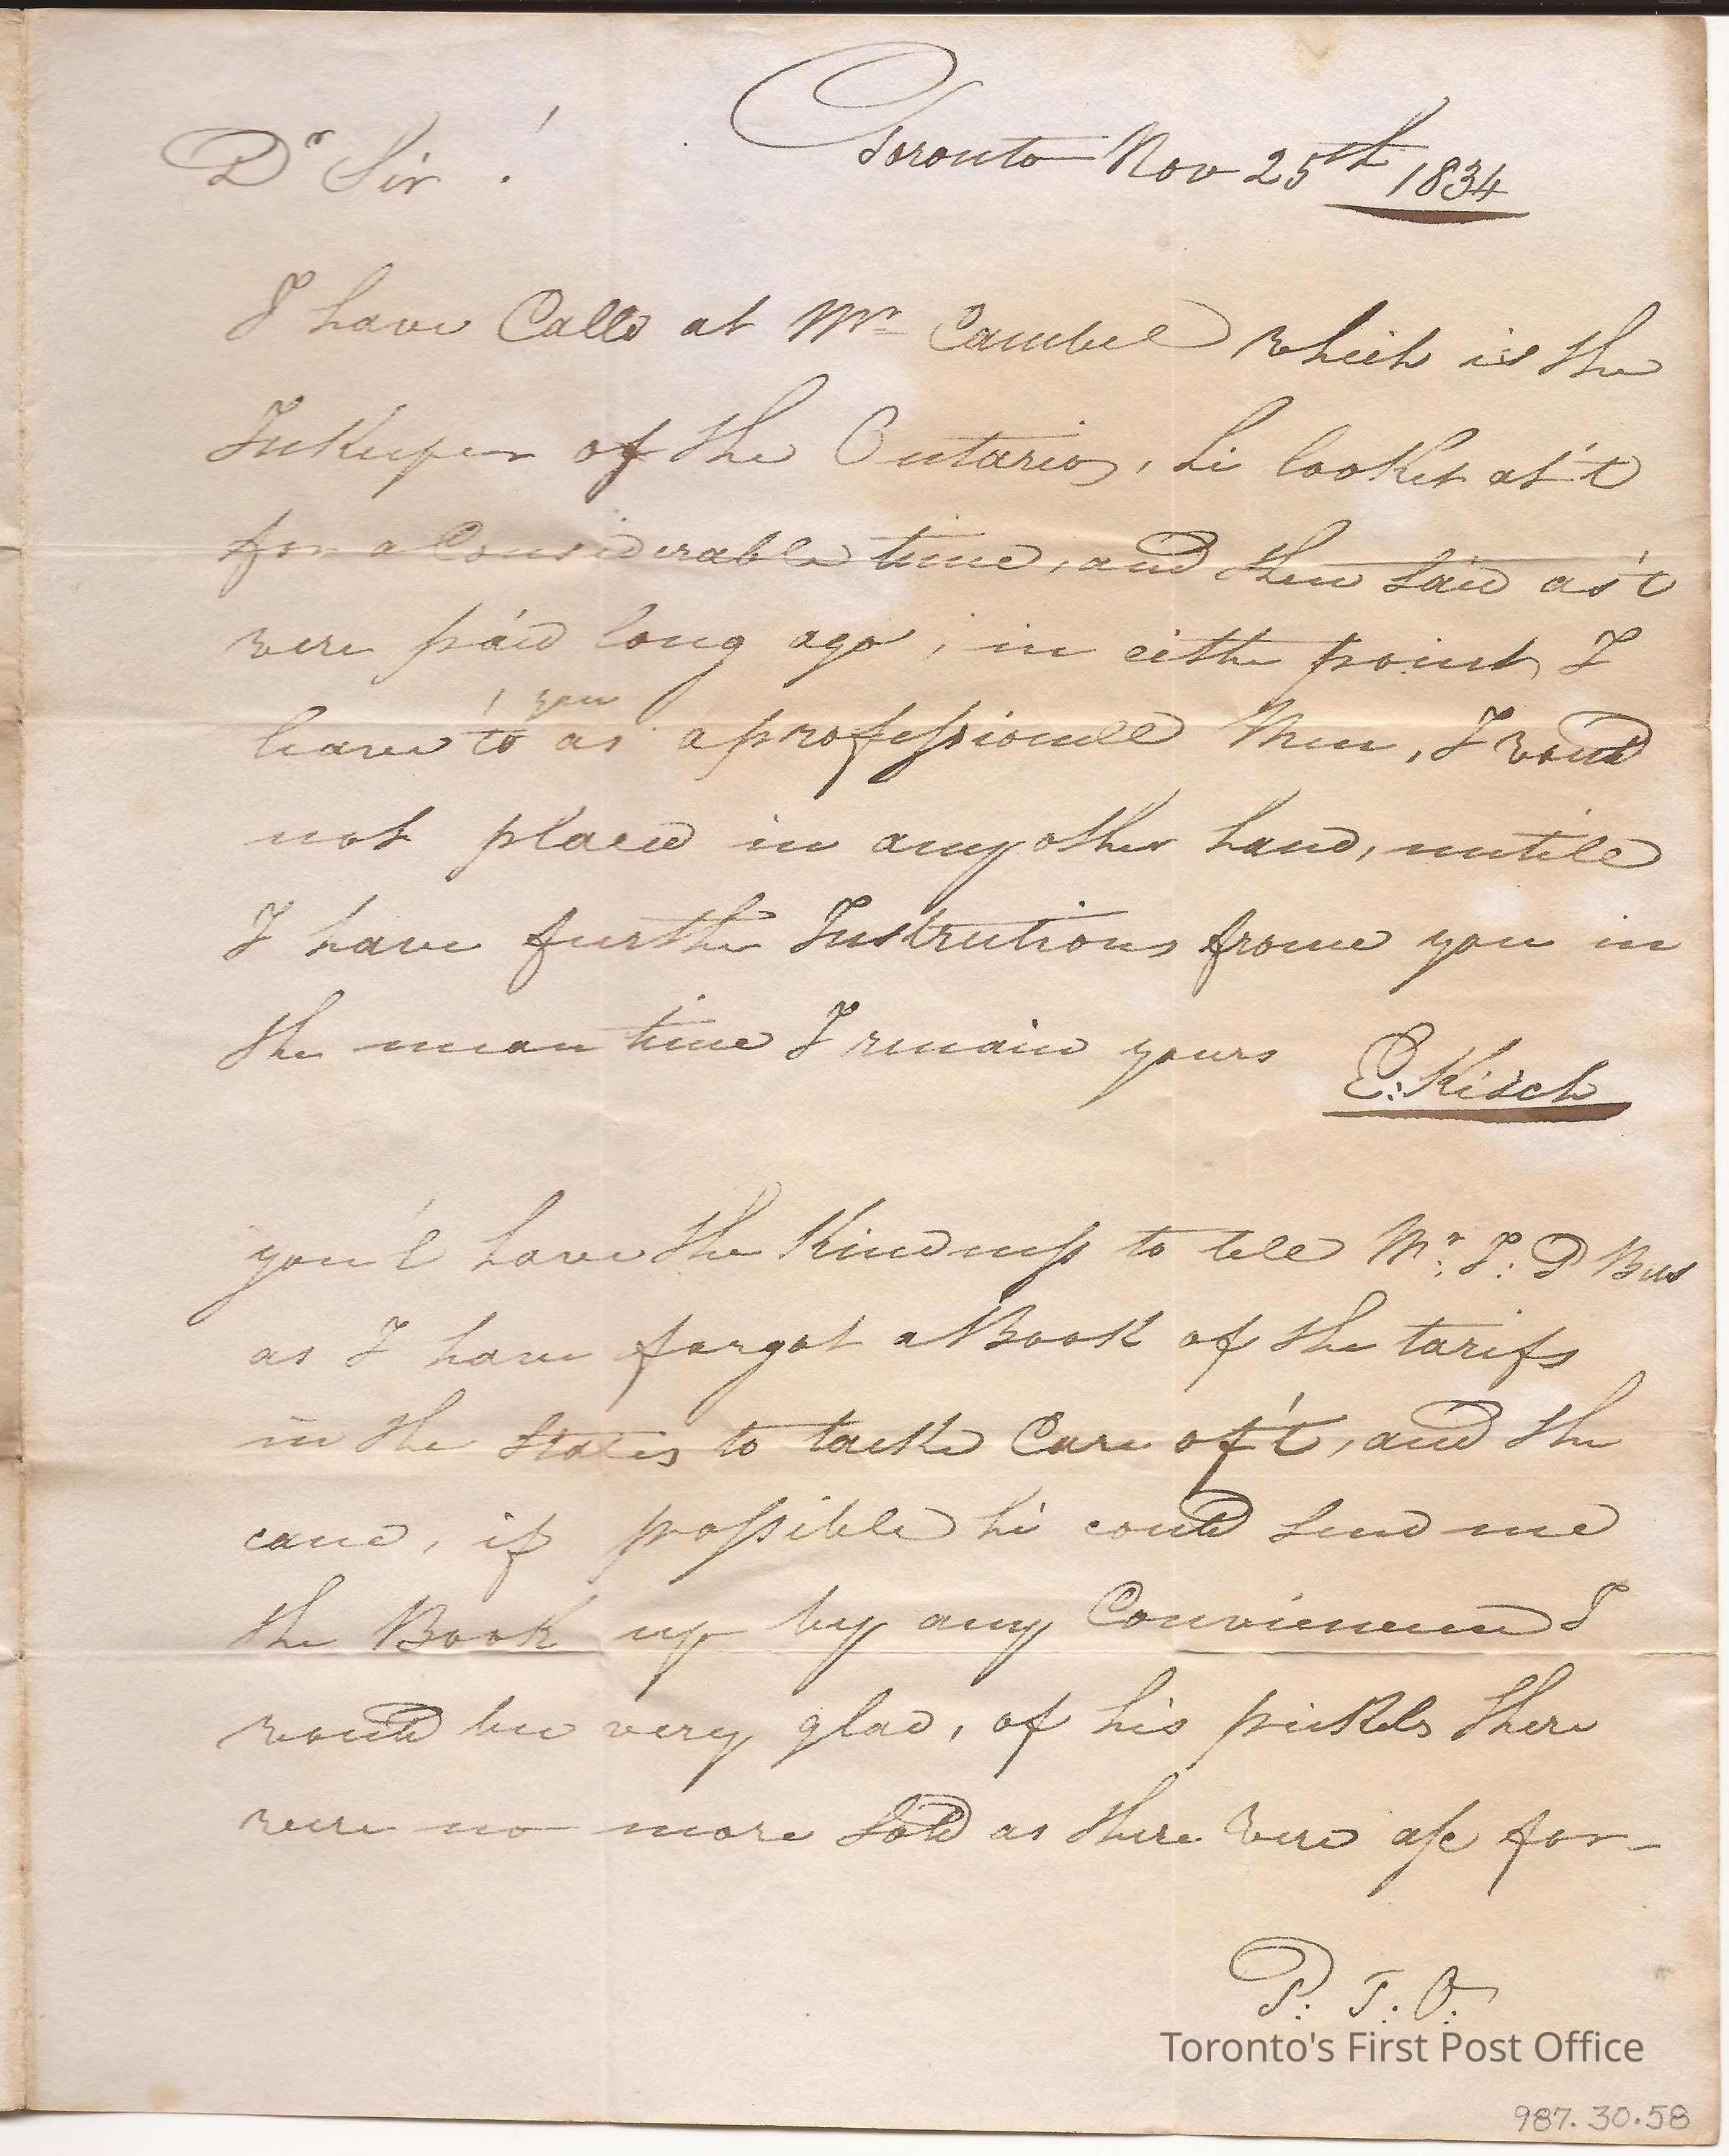 Toronto Nov 25th 1834
Dr Sir !
I have Calld at Mr Cambel which is the
Inkeeper of the Ontario, he looket at't
for a Considerable time, and then said as't
were paid long ago, in eithe point, I
leave't to you as a professionell Men, I woud
not placed in any other hand, untill
I have furthe Instrutions frome you in
the mean time I remain yours E: Kisch
you'l have the Kindness to tell Mr: I: D
as I have forgot a Book of the tarifs
in the States to tacke Care of't, and the
cane, if possible he could send me
the Book up by any Convienence I
would be very glad, of his pickels there
were no more Sold as there were for-
P. T. O.
Toronto's First Post Office
987.30.58